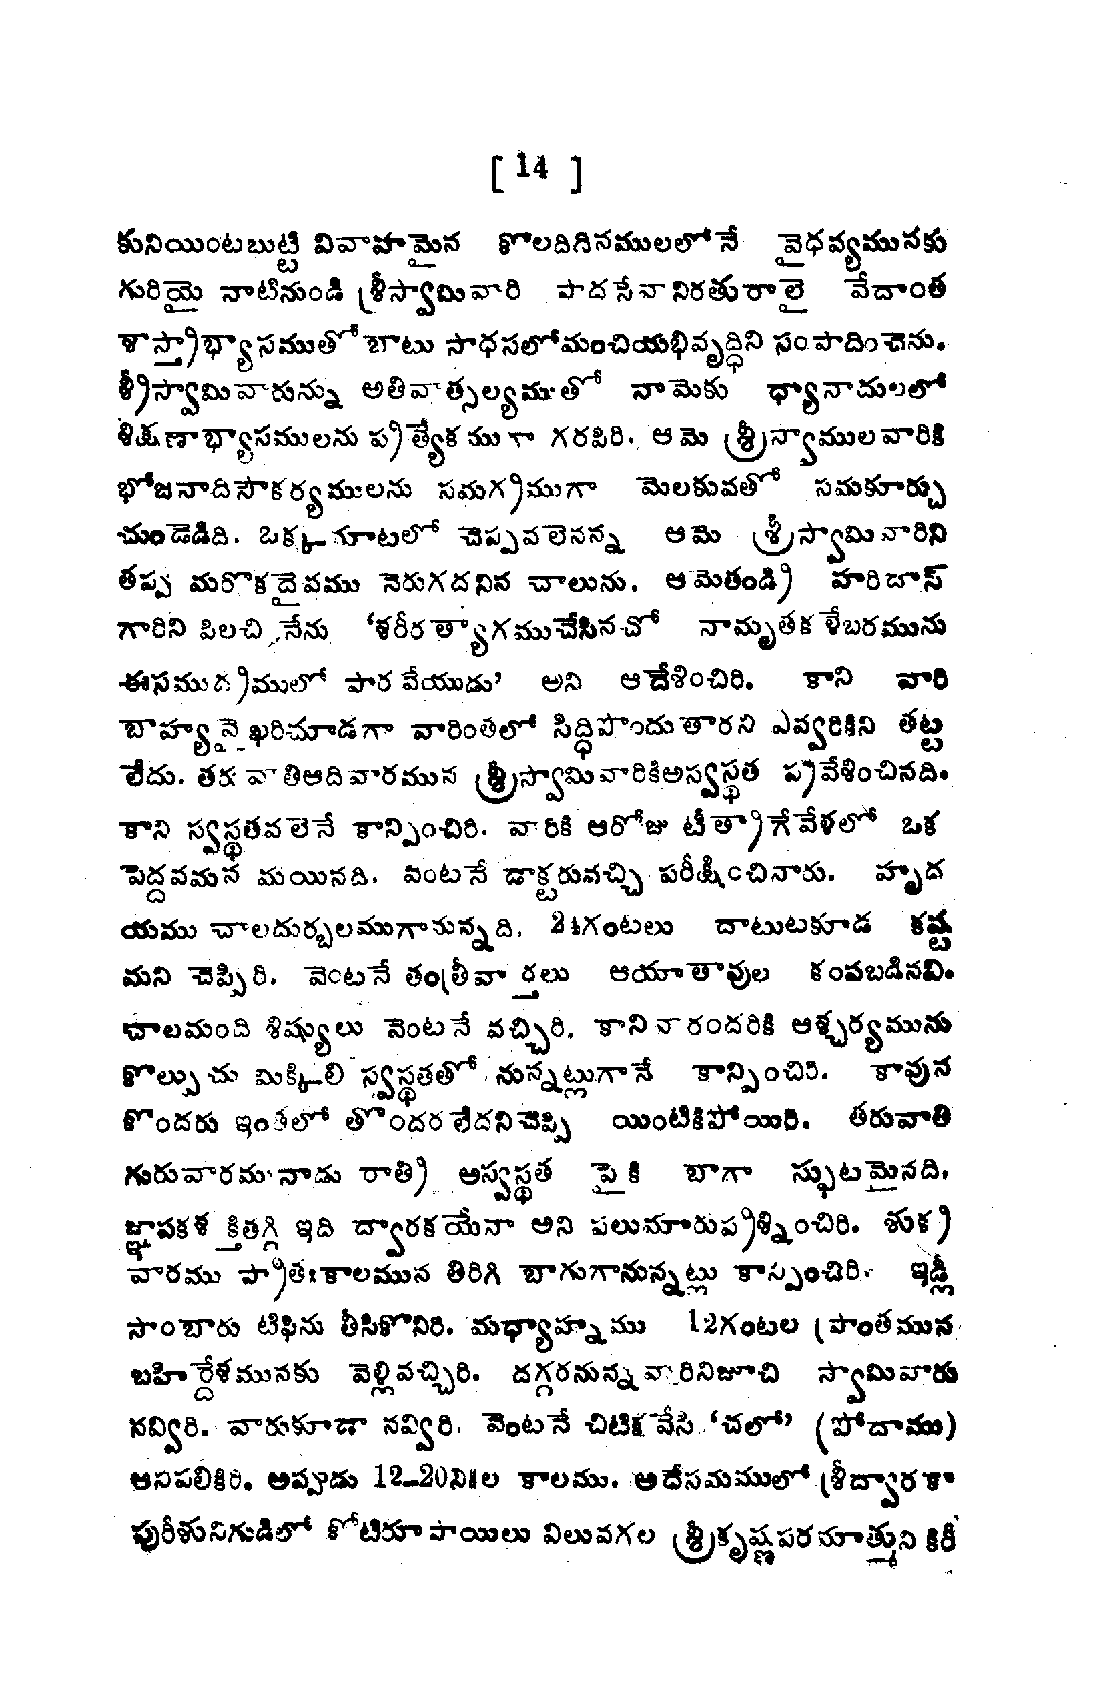 [ 14 ]
కునియింటబుట్టి వివాహమైన కొలదిదినములలోనే వైధవ్యమునకు
గురియై నాటినుండి శ్రీస్వామివారి పాదసేవానిరతురాలై వేదాంత
శాస్త్రాభ్యాసముతోబాటు సాధనలోమంచియభివృద్ధిని సంపాదించెను.
శ్రీస్వామివారున్ను అతివాత్సల్యముతో నామెకు ధ్యానాదులలో
శిక్షణాభ్యాసములను ప్రత్యేకముగా గరపిరి. ఆమె శ్రీస్వాములవారికి
భోజనాదిసౌకర్యములను సమగ్రముగా మెలకువతో సమకూర్చు
చుండెడిది. ఒక్కమాటలో చెప్పవలెనన్న ఆమె శ్రీస్వామివారిని
తప్ప మరొకదైవము నెరుగదనిన చాలును. ఆమెతండ్రి హరిదాస్
గారిని పిలచి, నేను 'శరీరత్యాగముచేసినచో నామృతకళేబరమును
ఈసముద్రములో పారవేయుడు' అని ఆదేశించిరి. కాని వారి
బాహ్యవైఖరిచూడగా వారింతలో సిద్ధిపొందుతారని ఎవ్వరికిని తట్ట
లేదు. తరువాతిఆదివారమున శ్రీస్వామివారికిఅస్వస్థత ప్రవేశించినది.
కాని స్వస్థతవలెనే కాన్పించిరి. వారికి ఆరోజు టీత్రాగేవేళలో ఒక
పెద్దవమన మయినది. వెంటనే డాక్టరువచ్చి పరీక్షించినారు. హృద
యము చాలదుర్బలముగానున్నది. 24గంటలు దాటుటకూడ కష్ట
మని చెప్పిరి. వెంటనే తంత్రీవార్తలు ఆయాతావుల కంపబడినవి.
చాలమంది శిష్యులు వెంటనే వచ్చిరి. కానివారందరికి ఆశ్చర్యమును
కొల్పుచు మిక్కిలి స్వస్థతతో నున్నట్లుగానే కాన్పించిరి. కావున
కొందరు ఇంతలో తొందరలేదనిచెప్పి యింటికిపోయిరి. తరువాతి
గురువారమునాడు రాత్రి అస్వస్థత పైకి బాగా స్ఫుటమైనది.
జ్ఞాపకశక్తితగ్గి ఇది ద్వారకయేనా అని పలుమారుప్రశ్నించిరి. శుక్ర
వారము ప్రాతఃకాలమున తిరిగి బాగుగానున్నట్లు కాన్పించిరి. ఇడ్లీ
సాంబారు టిఫిను తీసికొనిరి. మధ్యాహ్నము 12గంటల ప్రాంతమున
బహిర్దేశమునకు వెళ్లివచ్చిరి. దగ్గరనున్నవారినిజూచి స్వామివారు
నవ్విరి. వారుకూడా నవ్విరి. వెంటనే చిటికవేసి 'చలో' (పోదాము)
అనిపలికిరి. అప్పుడు 12-20ని॥ల కాలము. అదేసమములో శ్రీద్వారకా
పురీశునిగుడిలో కోటిరూపాయిలు విలువగల శ్రీకృష్ణపరమాత్ముని కిరీ